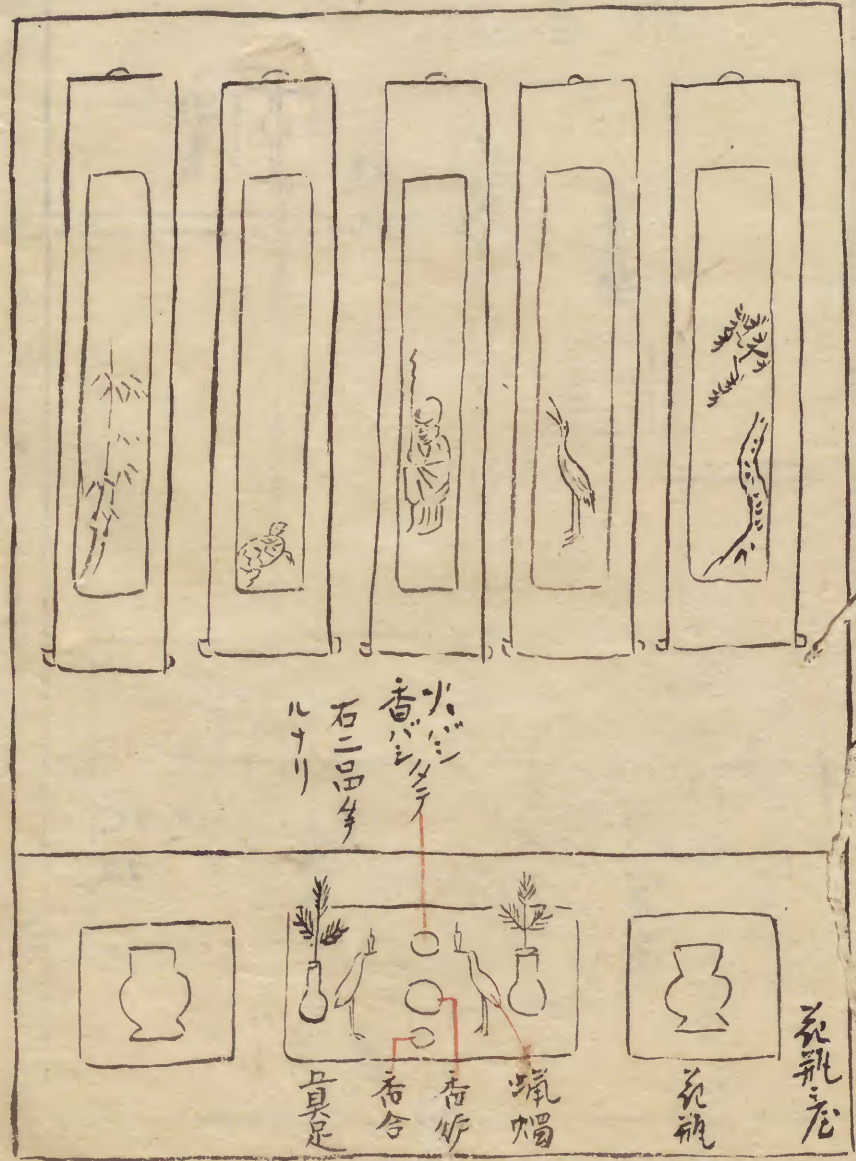 火バシ
香バシタテ
右二品
ルナリ
花瓶
花瓶
蝋燭
香炉
香合
具足